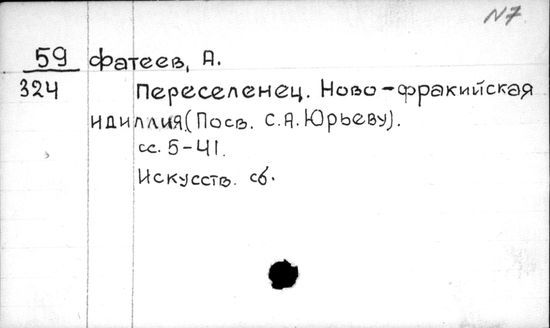 N7
59 Фатеев, А.
324 Переселенец. Ново-фракийская
идиллия (Посв. С.А. Юрьеву).
сс. 5-41.
Искусств. сб.